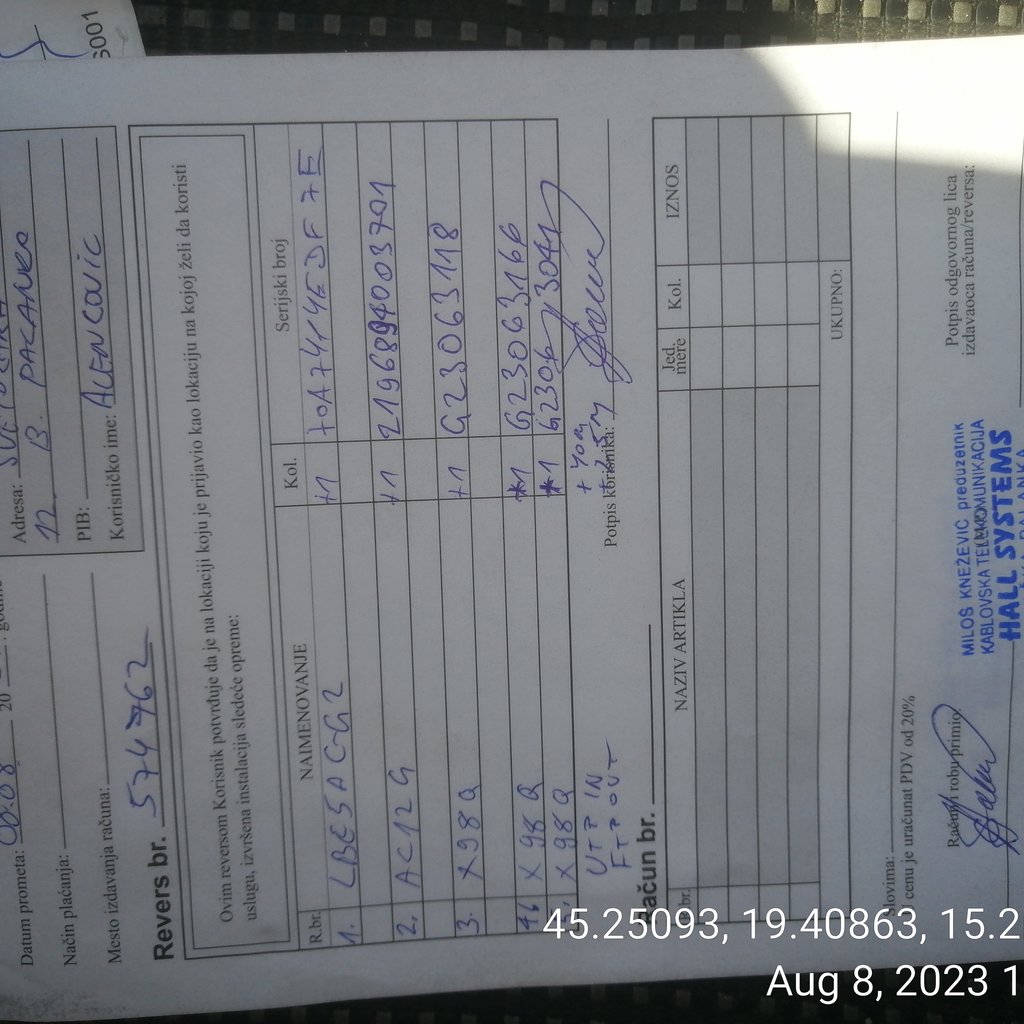 Adresa:
12 B. PALANKA
PIB:
Korisničko ime: ALENCOVIC
Datum prometa: 20
Način plaćanja:
Mesto izdavanja računa:
Revers br. 574962
Ovim reversom Korisnik potvrđuje da je na lokaciji koju je prijavio kao lokaciju na kojoj želi da koristi
uslugu, izvršena instalacija sledeće opreme:
R.br. NAIMENOVANJE Kol. Serijski broj
1. LBE5ACG2 +1 70A7414YEDF7E
2. AC12G +1 2196894003701
3. X98Q +1 G23063118
X98Q 1 G23063166
X98Q 1
UTP IN + 40m
FTP OUT
Potpis korisnika:
Račun br.
br. NAZIV ARTIKLA Jed. mere Kol. IZNOS
UKUPNO:
Slovima:
U cenu je uračunat PDV od 20%
Račun i robu primio:
Potpis odgovornog lica
izdavaoca računa/reversa:
MILOŠ KNEŽEVIĆ preduzetnik
KABLOVSKA TELEKOMUNIKACIJA
HALL SYSTEMS
45.25093, 19.40863, 15.2
Aug 8, 2023 1